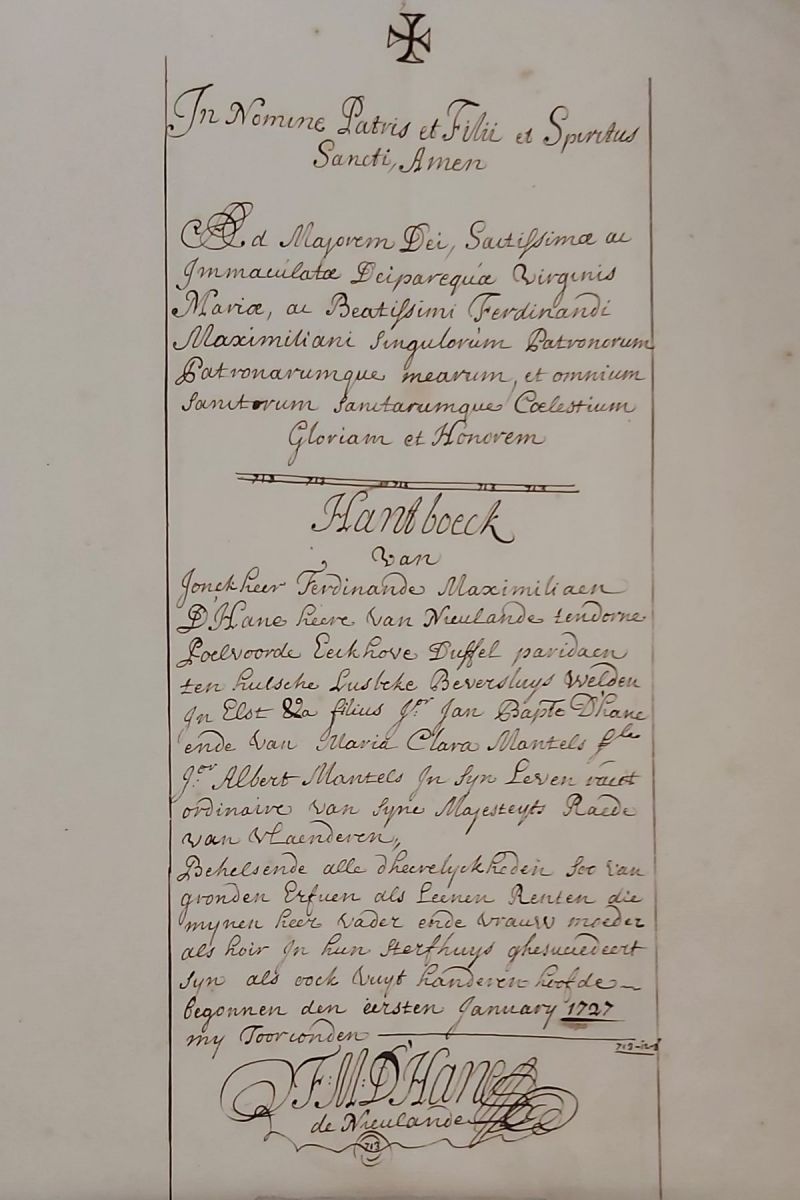 In Nomine Patris et Filii et Spiritus
Sancti, Amen
Ad Majorem Dei, Sactissimæ ac
Immaculatæ Deiparequæ Virginis
Mariæ, ac Beatissimi Ferdinandi
Maximiliani Singulorum Patronorum
Patronarumque mearum, et omnium
Sanctorum Sanctarumque Cœlestium
Gloriam et Honorem
713 713 713 713 713
Hantboeck
van
Jonckheer Ferdinande Maximiliaen
D'Hane heere van Nieulande tendorne
Poelvoorde Eeckhove Duffel paridaen
ten hulsche Lusbeke Beversluys Welden
In Elst &a filius Jor Jan Bapte D'hane
ende van Maria Clara Mantels fle
Jor Albert Mantels In Syn Leven raedt
ordinaire van Syne Majesteyts Raede
van Vlaenderen,
Behelsende alle dheerelyckheden Soo van
gronden Erfven als Leenen Renten die
mynen heer vader ende vrauw moeder
als hoir In hun Sterfhuys ghesuccedeert
Syn als oock vuyt handeren hoofde
begonnen den eersten January 1727
my Toorconden
F:M:D'Hane
de Nieulande
713